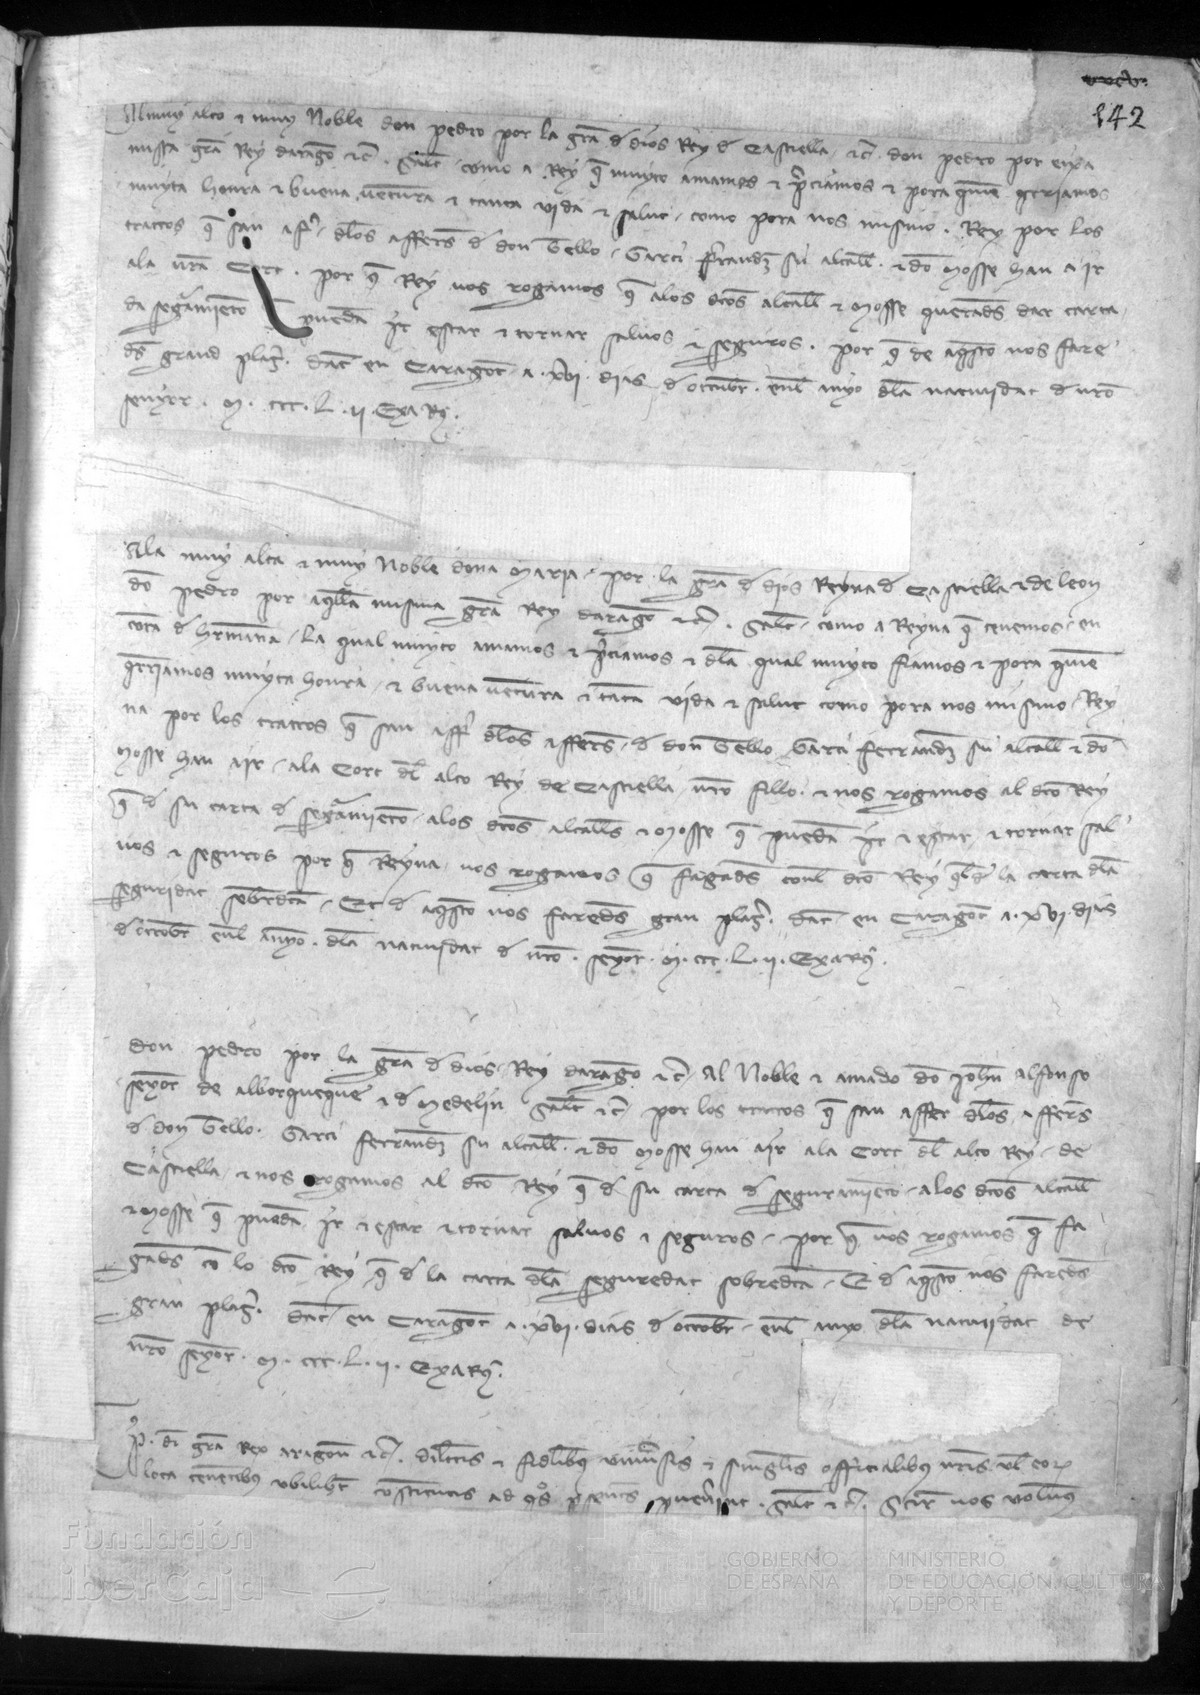 142
Al muy alto e muy Noble don pedro por la gra d dios Rey d Castiella etc don pedro por exa
missa gra Rey darago etc Salut como a Rey q muyto amamos e pciamos e pora quie qrriamos
muyta honra e buena ventura e tanta vida e salut como pora nos mismo. Rey por los
tractos q san affer dlos affers d don Tello Garci frrandz su alcall e do Mosse han a ir
ala vra Cort por q Rey vos rogamos q alos dcos alcall e Mosse querades dar carta
da seguramieto pueda ir estar e tornar salvos e seguros. por q de aqsto nos fare
ds grand plaz. Dat en Caragoc a xvi dias d octubr enl anyo dla nativitat d nro
senyor M ccc L ii Exa Rq
Ala muy alta e muy Noble dona Maria por la gra d dios Reyna d Castiella e de leon
do pedro por aqlla misma gra Rey darago etc. Salut como a Reyna q tenemos en
cota d hrmana la qual muyto amamos e pciamos e dla qual muyto fiamos e pora quie
qrriamos muyta honra e buena ventura e tata vida e salut como pora nos mismo Rey
na por los tractos q san affer dlos affers d don Tello Garci ferrandz su alcall e do
Mosse han a ir ala Cort dl alto Rey de Castiella vro fillo e nos rogamos al dco Rey
q d su carta d seguramieto alos dcos alcalls e Mosse q pueda ir e estar e tornar sal
vos e seguros por q Reyna vos rogamos q fagads conl dco Rey ql d la carta dla
seguridat sobrdcta Et d aqsto nos fareds gran plaz. Dat en Caragoc a xvi dias
d octobr enl anyo dla nativitat d nro seyor M ccc L ii Exa Rq
don pedro por la gra d dios Rey darago etc Al Noble e amado do Johan alfonso
seyor de alborqueque e d Medelin Salut etc por los tractos q san affer dlos affers
d don Tello Garci ferrandz su alcall e do Mosse han air ala Cort dl alto Rey de
Castiella e nos rogamos al dco Rey q d su carta d seguramieto alos dcos alcall
e Mosse q pueda ir e estar e tornar salvos e seguros por q vos rogamos q fa
gads co lo dco Rey q d la carta dla seguredat sobredcta E d aqsto nos fareds
gran plaz. Dat en Caragoc a xvi dias d octobr enl anyo dla nativitat de
nro seyor M ccc L ii Exa Rq
P. di gra Rex aragon etc. dilectis e fidelibus universis e singulis officialibus nris vl eor
loca tenentibus ubilibt constitutis ad qos psents pvenint. Salt etc. Scire vos volum
Fundación
iberCaja
GOBIERNO
DE ESPAÑA
MINISTERIO
DE EDUCACIÓN, CULTURA
Y DEPORTE